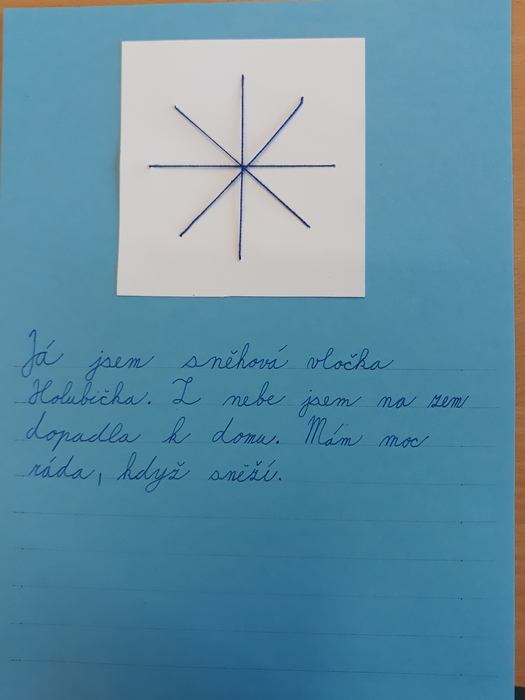 Já jsem sněhová vločka
Holubička. Z nebe jsem na zem
dopadla k domu. Mám moc
ráda, když sněží.